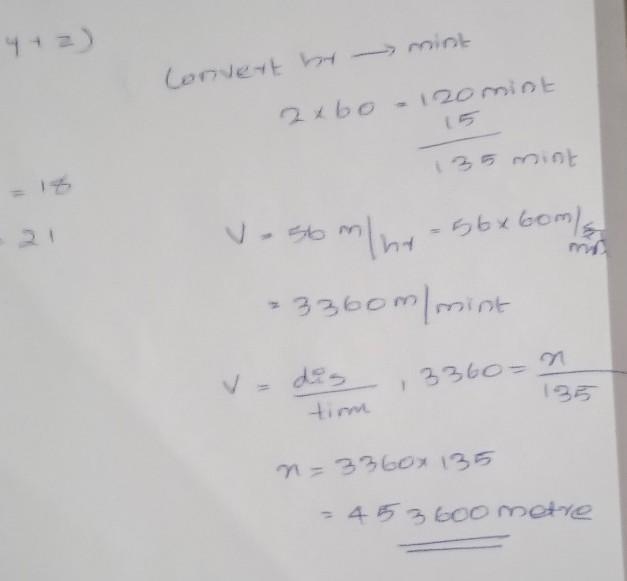 y + z)
Convert hr → mint
2 x 60 = 120 mint
15
135 mint
= 18
= 21
V = 56 m/hr = 56 x 60 m/min
= 3360 m/mint
V = dis/tim , 3360 = n/135
n = 3360 x 135
= 453600 metre